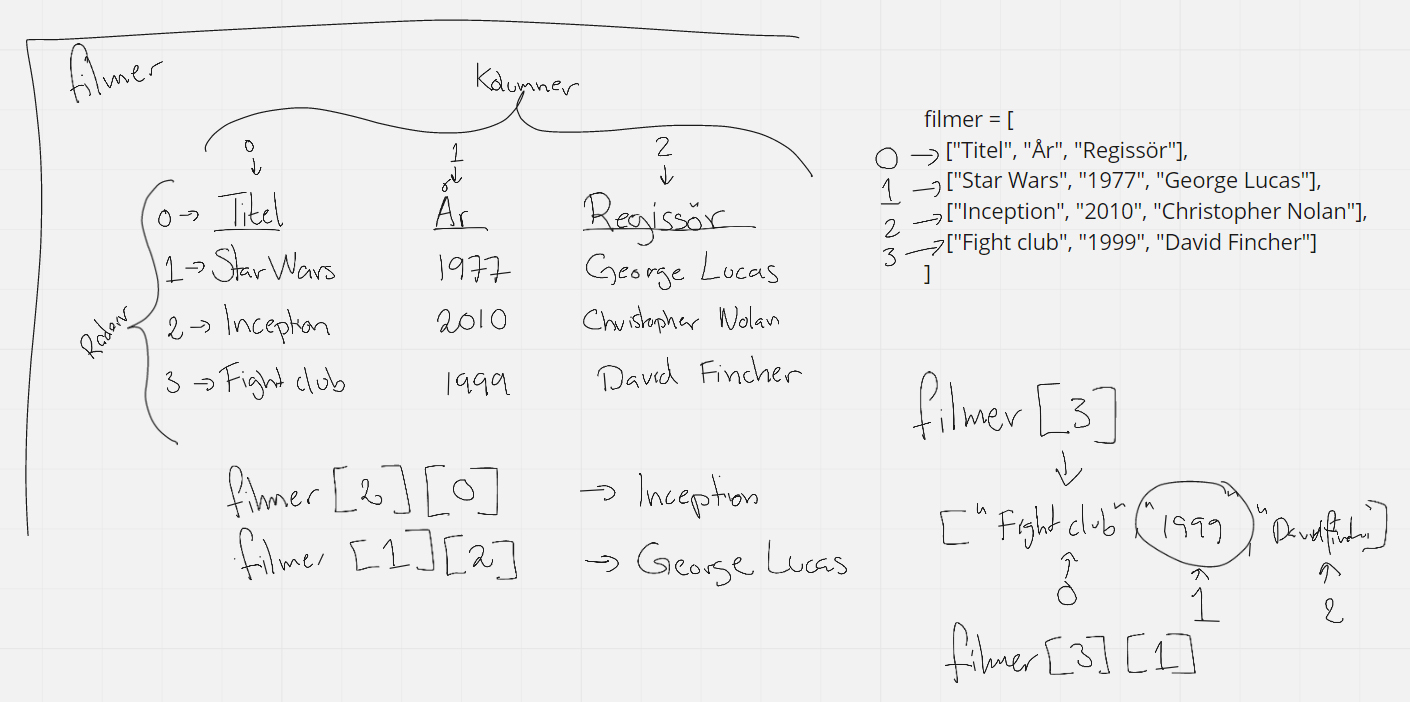 filmer
Kolumner
0 1 2
0 → Titel År Regissör
1 → Star Wars 1977 George Lucas
Rader
2 → Inception 2010 Christopher Nolan
3 → Fight club 1999 David Fincher
filmer [2][0] → Inception
filmer [1][2] → George Lucas
filmer = [
0 → ["Titel", "År", "Regissör"],
1 → ["Star Wars", "1977", "George Lucas"],
2 → ["Inception", "2010", "Christopher Nolan"],
3 → ["Fight club", "1999", "David Fincher"]
]
filmer [3]
["Fight club" "1999" "David Fincher]
0 1 2
filmer [3][1]